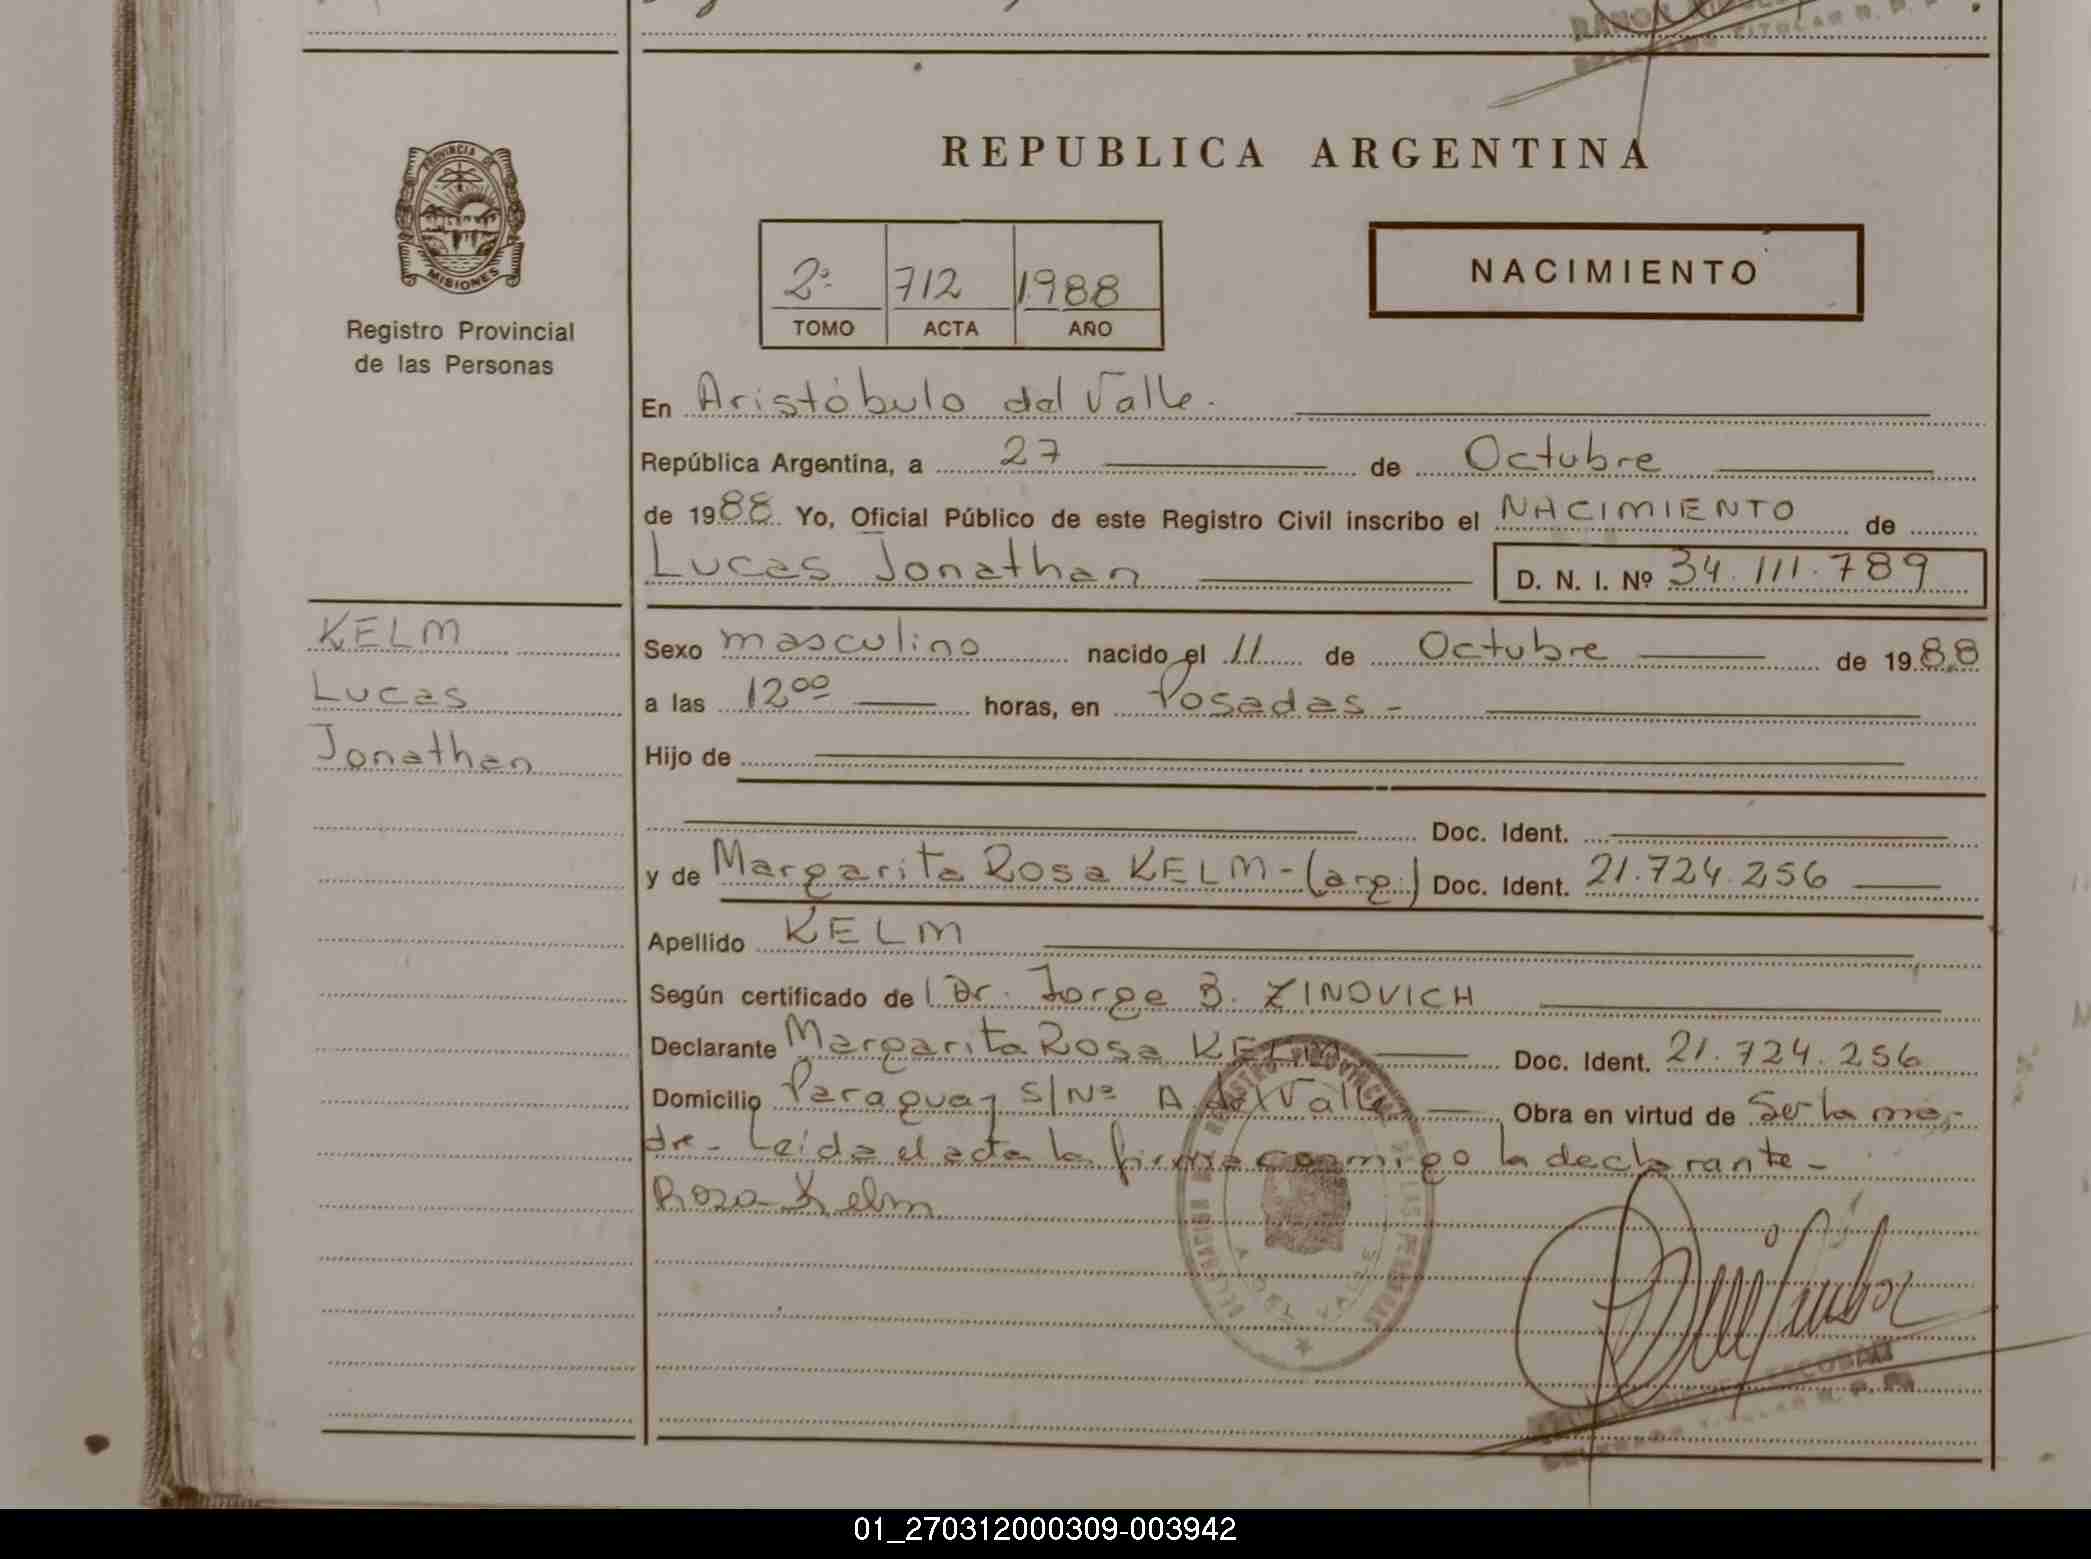 REPUBLICA ARGENTINA
PROVINCIA DE
MISIONES
Registro Provincial
de las Personas
2º 712 1988
TOMO ACTA AÑO
NACIMIENTO
En Aristóbulo del Valle.
República Argentina, a 27 de Octubre
de 1988 Yo, Oficial Público de este Registro Civil inscribo el NACIMIENTO de
Lucas Jonathan D. N. I. Nº 34.111.789
KELM
Lucas
Jonathan
Sexo masculino nacido el 11 de Octubre de 1988
a las 12⁰⁰ horas, en Posadas -
Hijo de
Doc. Ident.
y de Margarita Rosa KELM - (arg.) Doc. Ident. 21.724.256
Apellido KELM
Según certificado de Dr. Jorge B. ZINOVICH
Declarante Margarita Rosa KELM Doc. Ident. 21.724.256
Domicilio Paraguay S/Nº A. del Valle Obra en virtud de Ser la ma-
dre - Leida el acta la firma conmigo la declarante -
Rosa Kelm
01_270312000309-003942